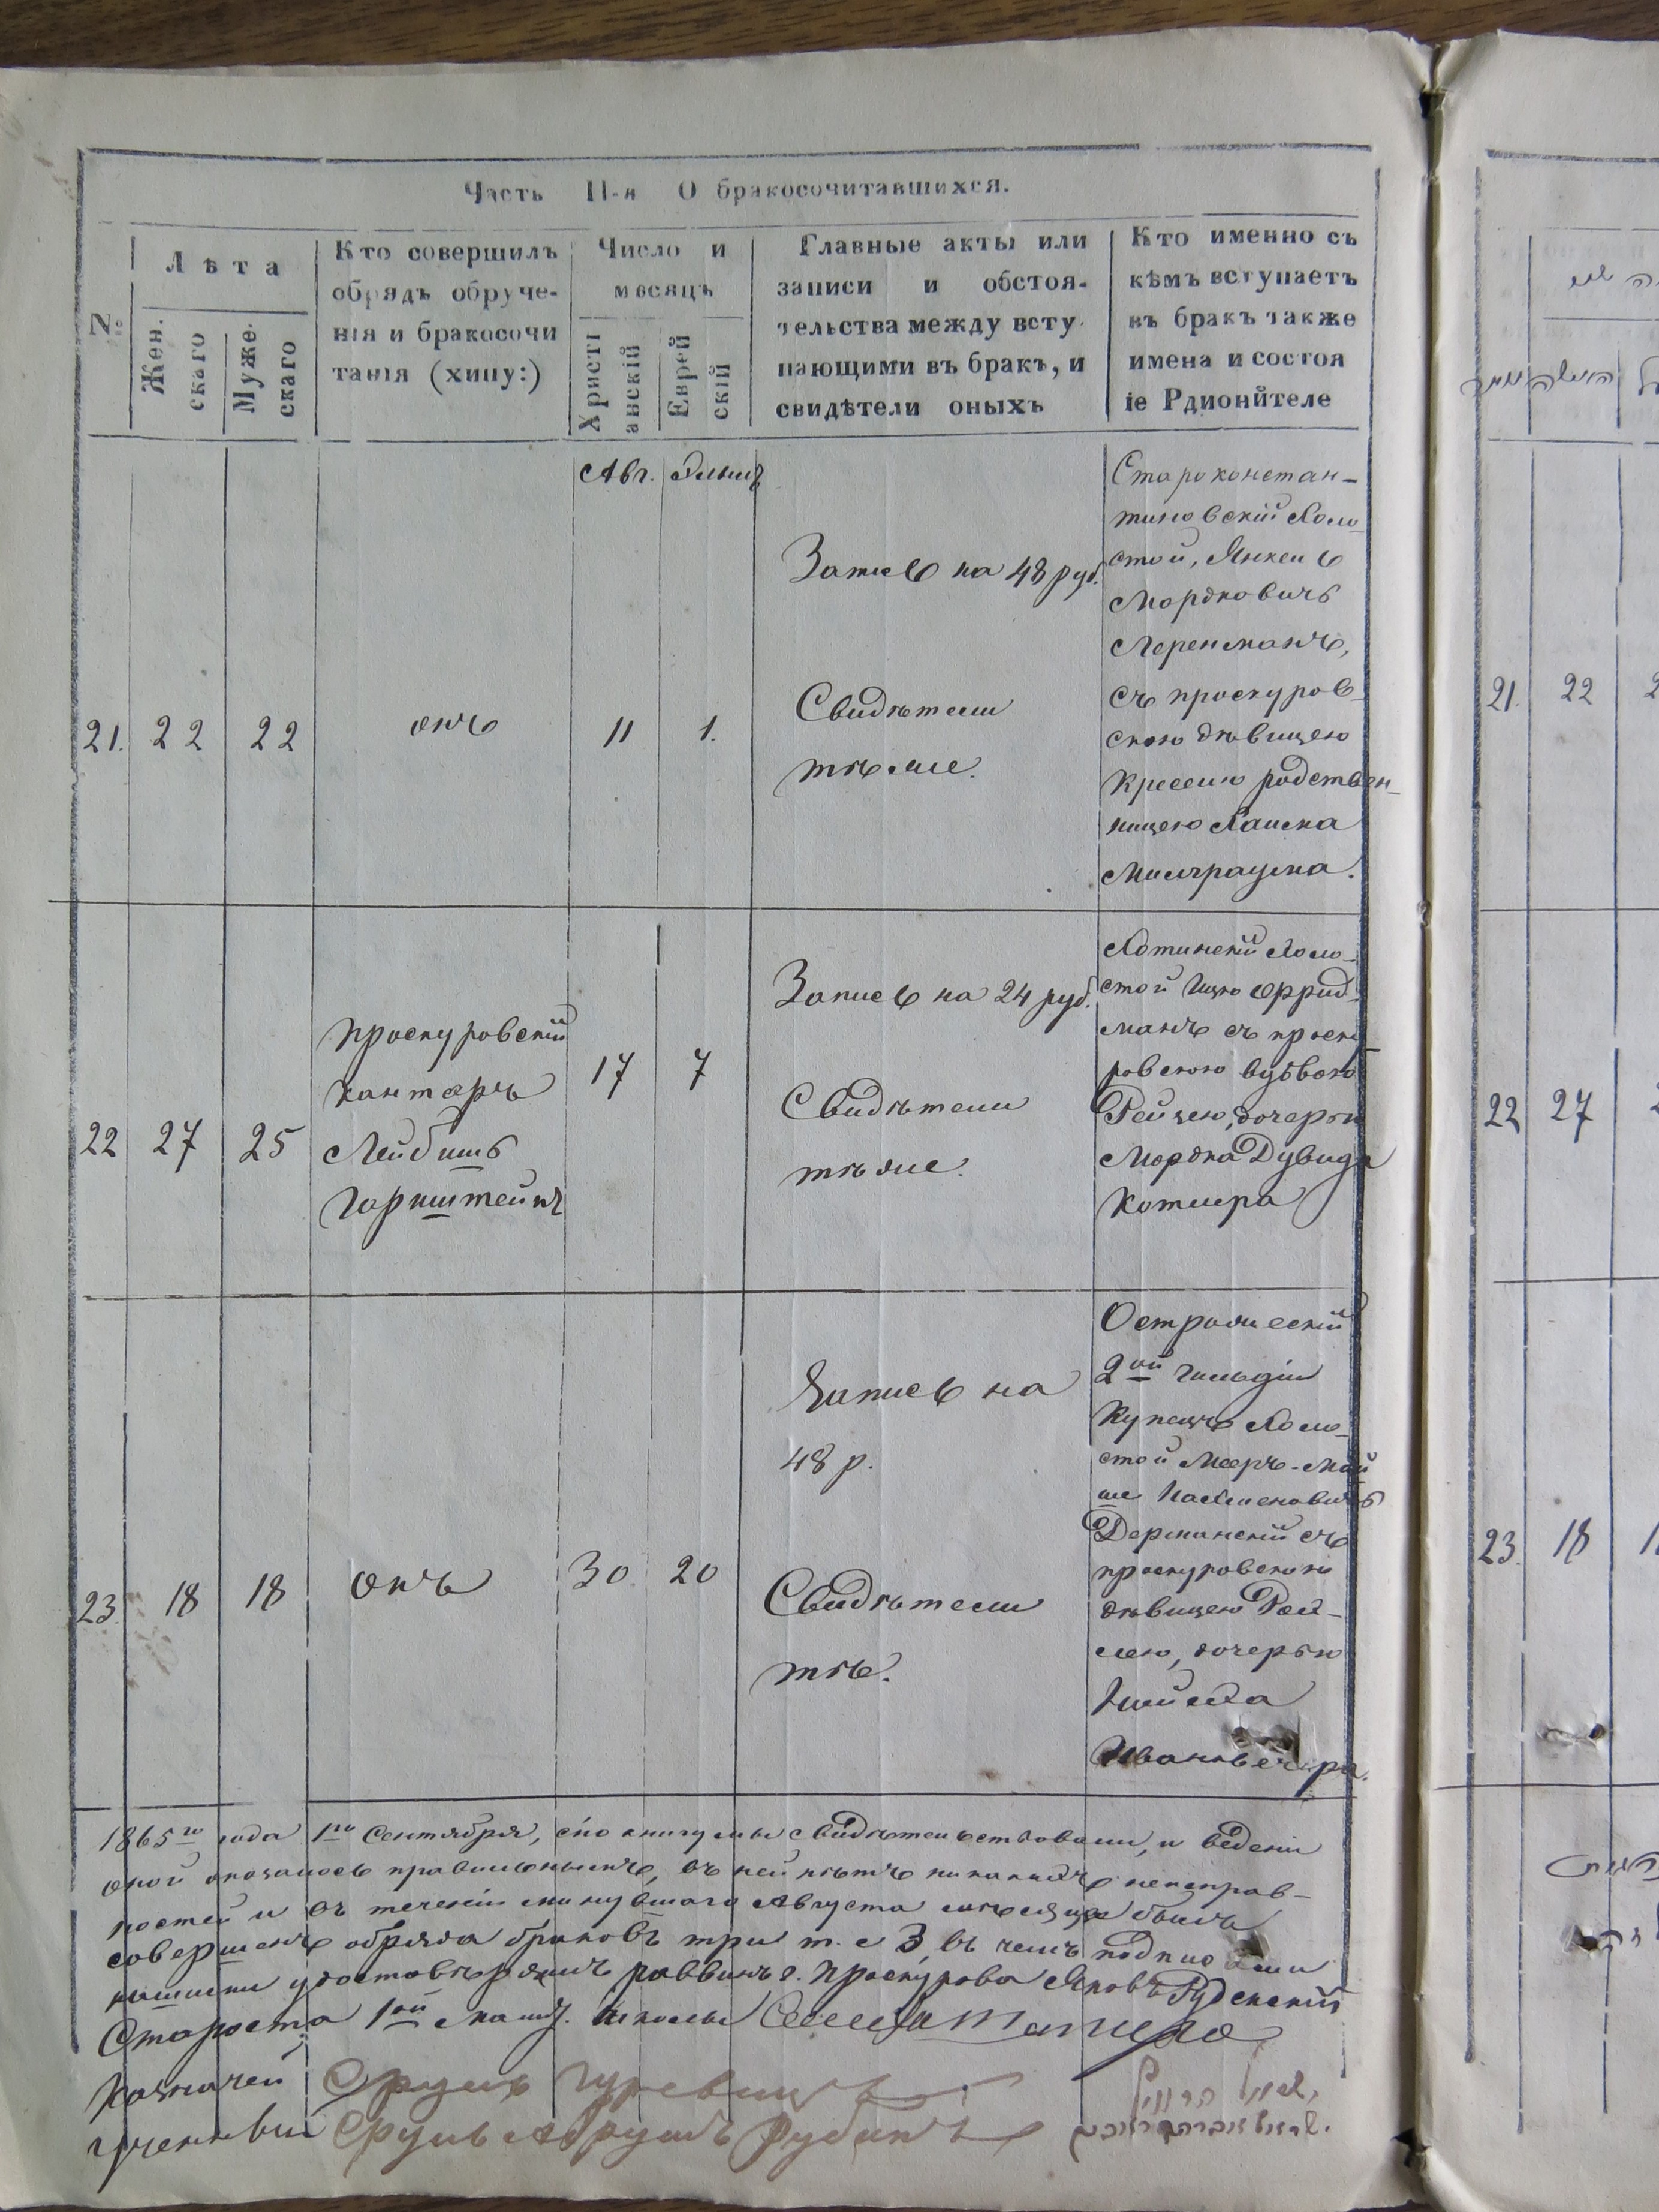 Часть II-я О бракосочитавшихся.
№
Лѣта
Жен.
скаго
Муже-
скаго
Кто совершилъ
обрядъ обруче-
нія и бракосочи
танія (хипу:)
Число и
мѣсяцъ
Христі
анскій
Еврей
скій
Главные акты или
записи и обстоя-
тельства между всту-
пающими въ бракъ, и
свидѣтели оныхъ
Кто именно съ
кѣмъ вступаетъ
въ бракъ также
имена и состоя
іе Рдионйтеле
Авг. Элылъ
21. 22 22
онъ
11 1.
Запись на 48 руб.
Свидѣтели
тѣже.
Староконстан-
тиновскій холо-
стой, Янкель
Мордковичъ
Перенманъ,
съ проскуров-
скою дѣвицею
Крессию родствен-
ницею Хаима
Милграума.
22 27 25
Проскуровскій
канторъ
Лейбишъ
Горнштейнъ
17 7
Запись на 24 руб.
Свидѣтели
тѣже.
Хотинскій холо-
стой Ицко Фрид-
манъ съ проску
ровскою вдовою
Рейзею, дочерью
Мордка Дувида
Котлера
23. 18 18
онъ
30 20
Запись на
48 р.
Свидѣтели
тѣ.
Острожескій
2ой гильдіи
Купецъ холо-
стой Мееръ-Мой
ше
Дерманскій съ
проскуровскою
дѣвицею Рей-
зею, дочерью
1865го года 1го Сентября, сію книгу мы свидѣтельствовали, и веденіи
оной оказалось правильнымъ, въ ней нѣтъ никакихъ неисправ-
ностей и въ теченіи минувшаго Августа мѣсяца былъ
совершенъ обряда браковъ три т. е 3, въ чемъ подписями
нашими удостовѣряемъ раввинъ г. Проскурова Яковъ Руденскій
Староста 1ой школы
Казначей Сруль Гуревицъ
ученный Сруль Абрумъ Рубинъ
21. 22
22 27
23. 18